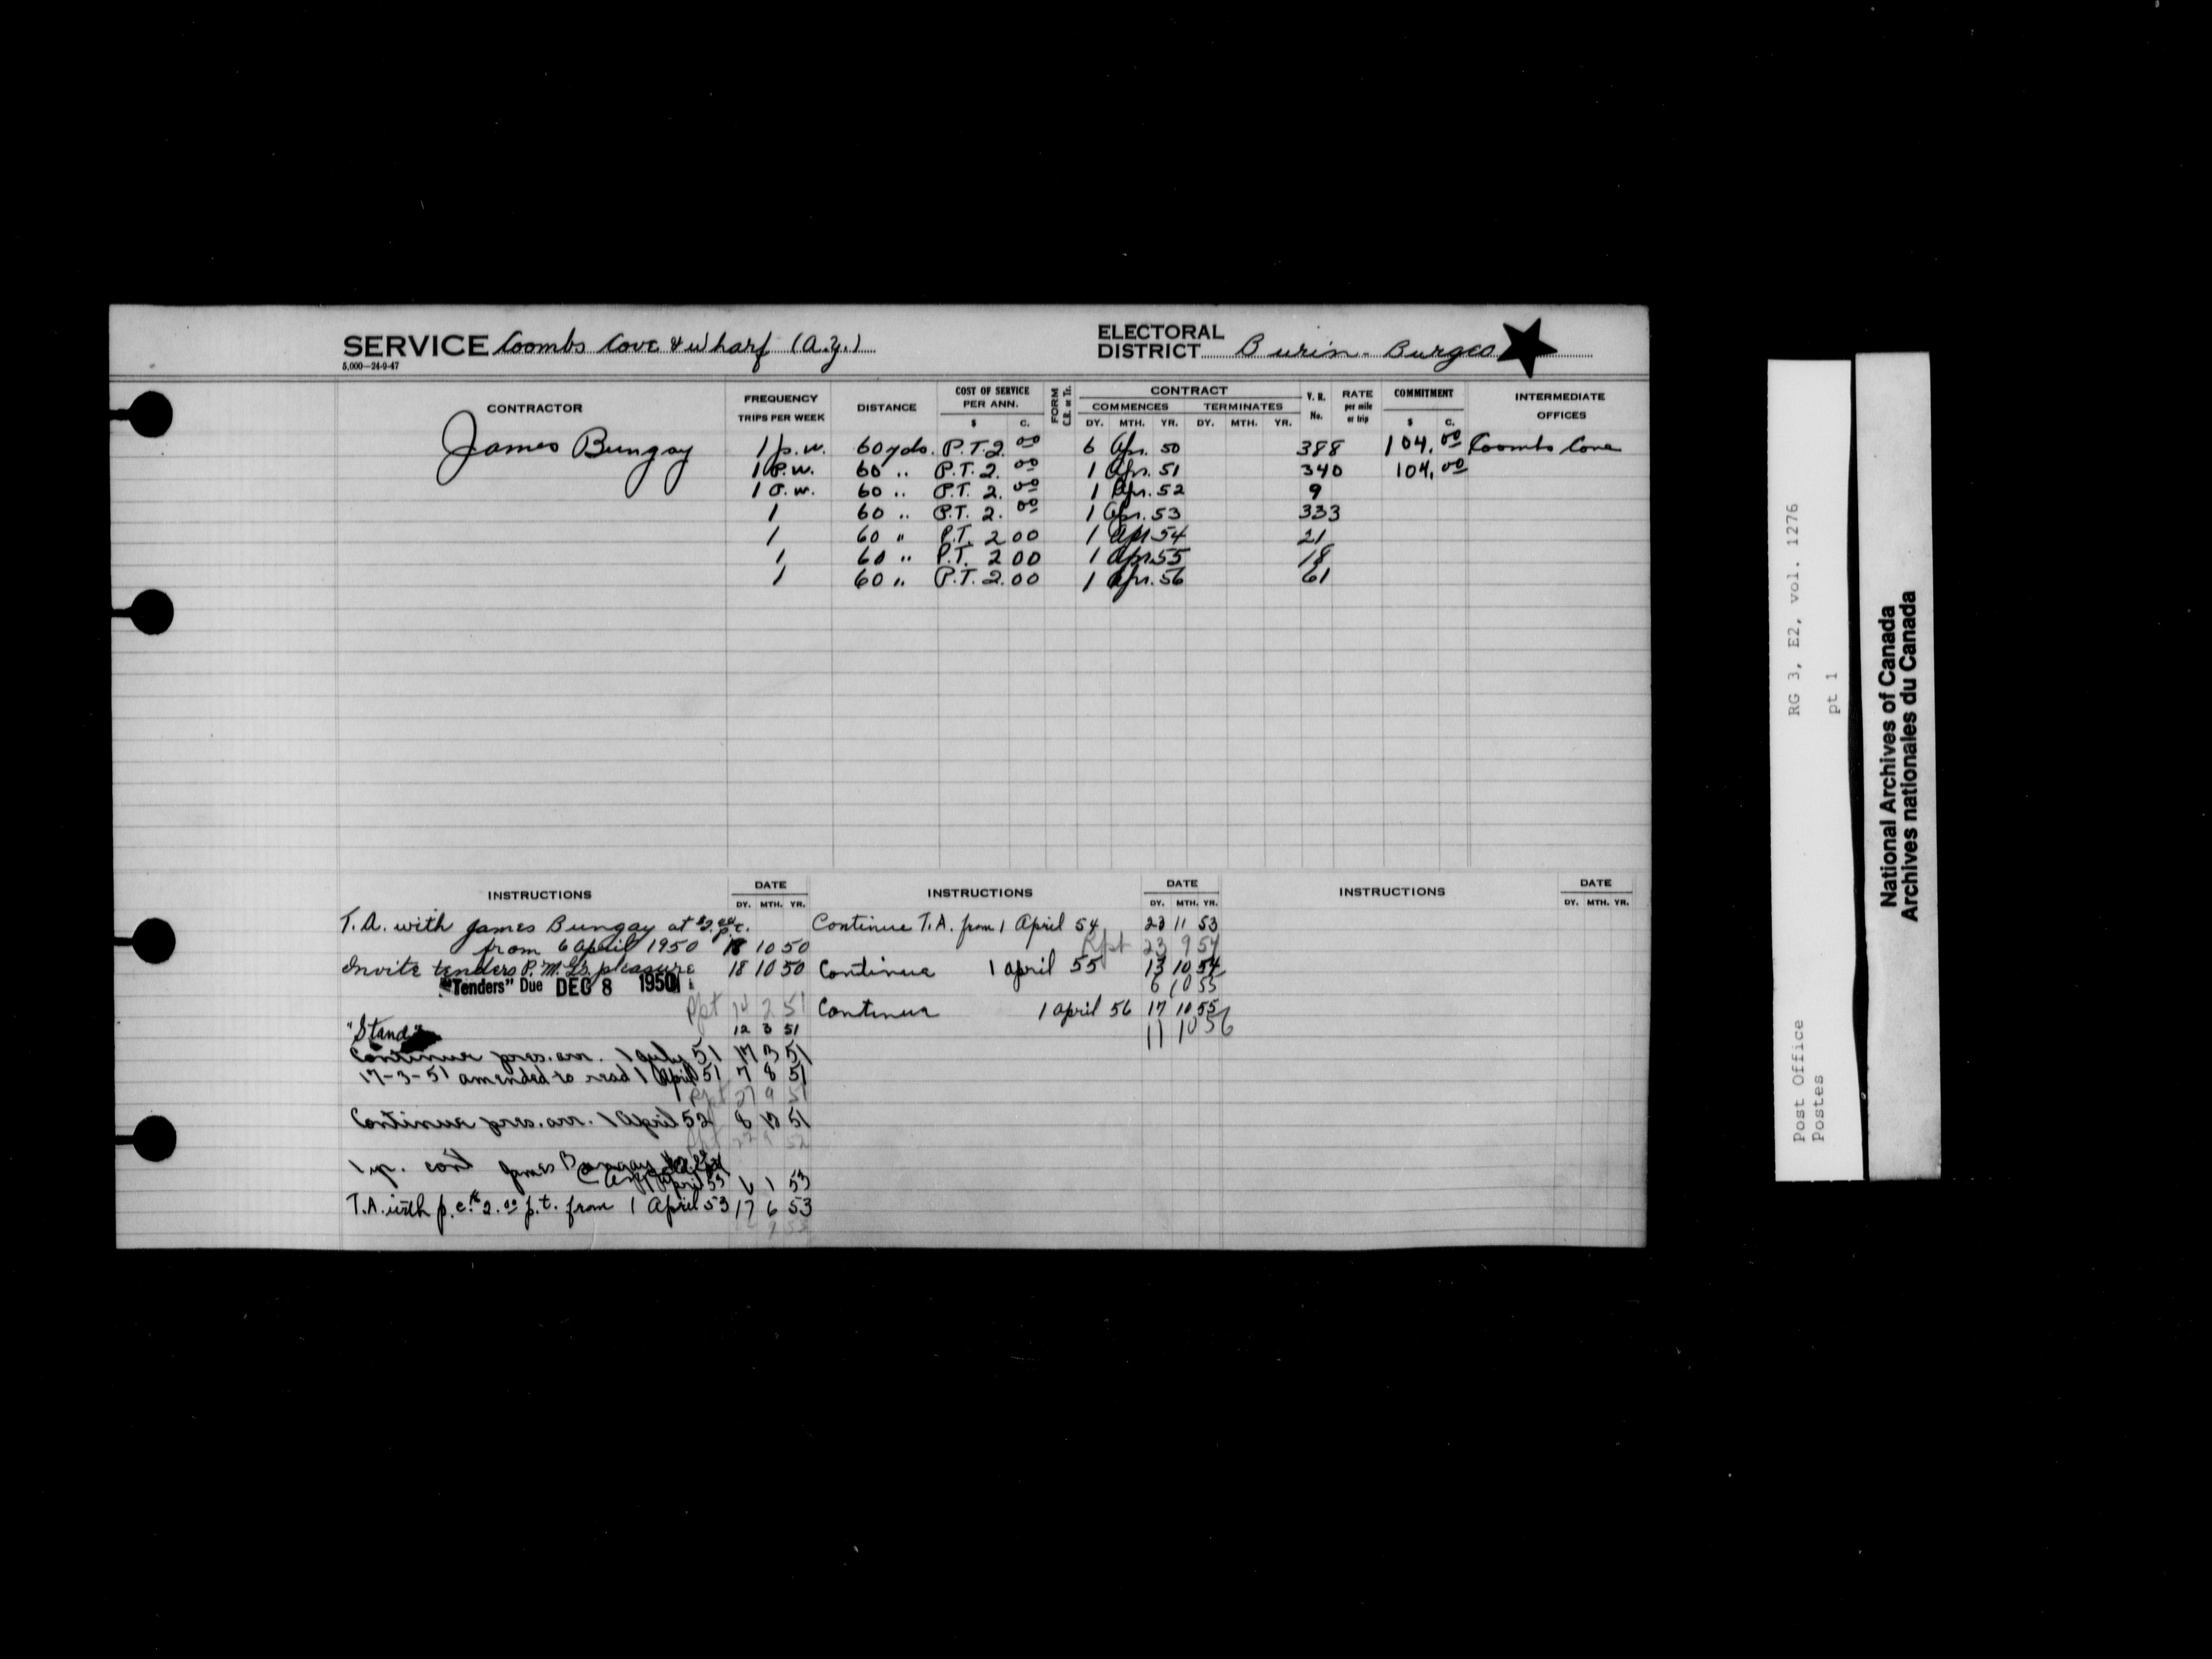 SERVICE Coombs Cove & Wharf (A.Y.)
5,000—24-9-47
ELECTORAL DISTRICT Burin-Burgeo
CONTRACTOR FREQUENCY TRIPS PER WEEK DISTANCE COST OF SERVICE PER ANN. $ C. FORM CONTRACT COMMENCES DY. MTH. YR. TERMINATES DY. MTH. YR. V. R. No. RATE per mile or trip COMMITMENT $ C. INTERMEDIATE OFFICES
James Bungay 1 p.w. 60 yds. P.T. 2.00 6 Apr. 50 388 104.00 Coombs Cove
1 p.w. 60 " P.T. 2.00 1 Apr. 51 340 104.00
1 p.w. 60 " P.T. 2.00 1 Apr. 52 9
1 60 " P.T. 2.00 1 Apr. 53 333
1 60 " P.T. 2 00 1 Apr 54 21
1 60 " P.T. 2 00 1 Apr. 55 18
1 60 " P.T. 2.00 1 Apr. 56 61
INSTRUCTIONS DATE DY. MTH. YR.
T.A. with James Bungay at $2.00 p.t.
from 6 April 1950 18 10 50
Invite tenders P.M.G's. pleasure 18 10 50
"Tenders" Due DEC 8 1950
Rpt 2 51
"Stand" 12 3 51
Continue pres. arr. 1 July 51 17 3 51
17-3-51 amended to read 1 April 51 7 8 51
Rpt 27 9 51
Continue pres. arr. 1 April 52 8 51
Rpt 22 9 52
James Bungay
1 April 53 1 53
T.A. with p.c. 2.00 p.t. from 1 April 53 17 6 53
INSTRUCTIONS DATE DY. MTH. YR.
Continue T.A. from 1 April 54 23 11 53
Rpt 23 9 54
Continue 1 April 55 13 10 54
6 10 55
Continue 1 April 56 17 10 55
11 10 56
INSTRUCTIONS DATE DY. MTH. YR.
Post Office
Postes
RG 3, E2, vol. 1276
pt 1
National Archives of Canada
Archives nationales du Canada